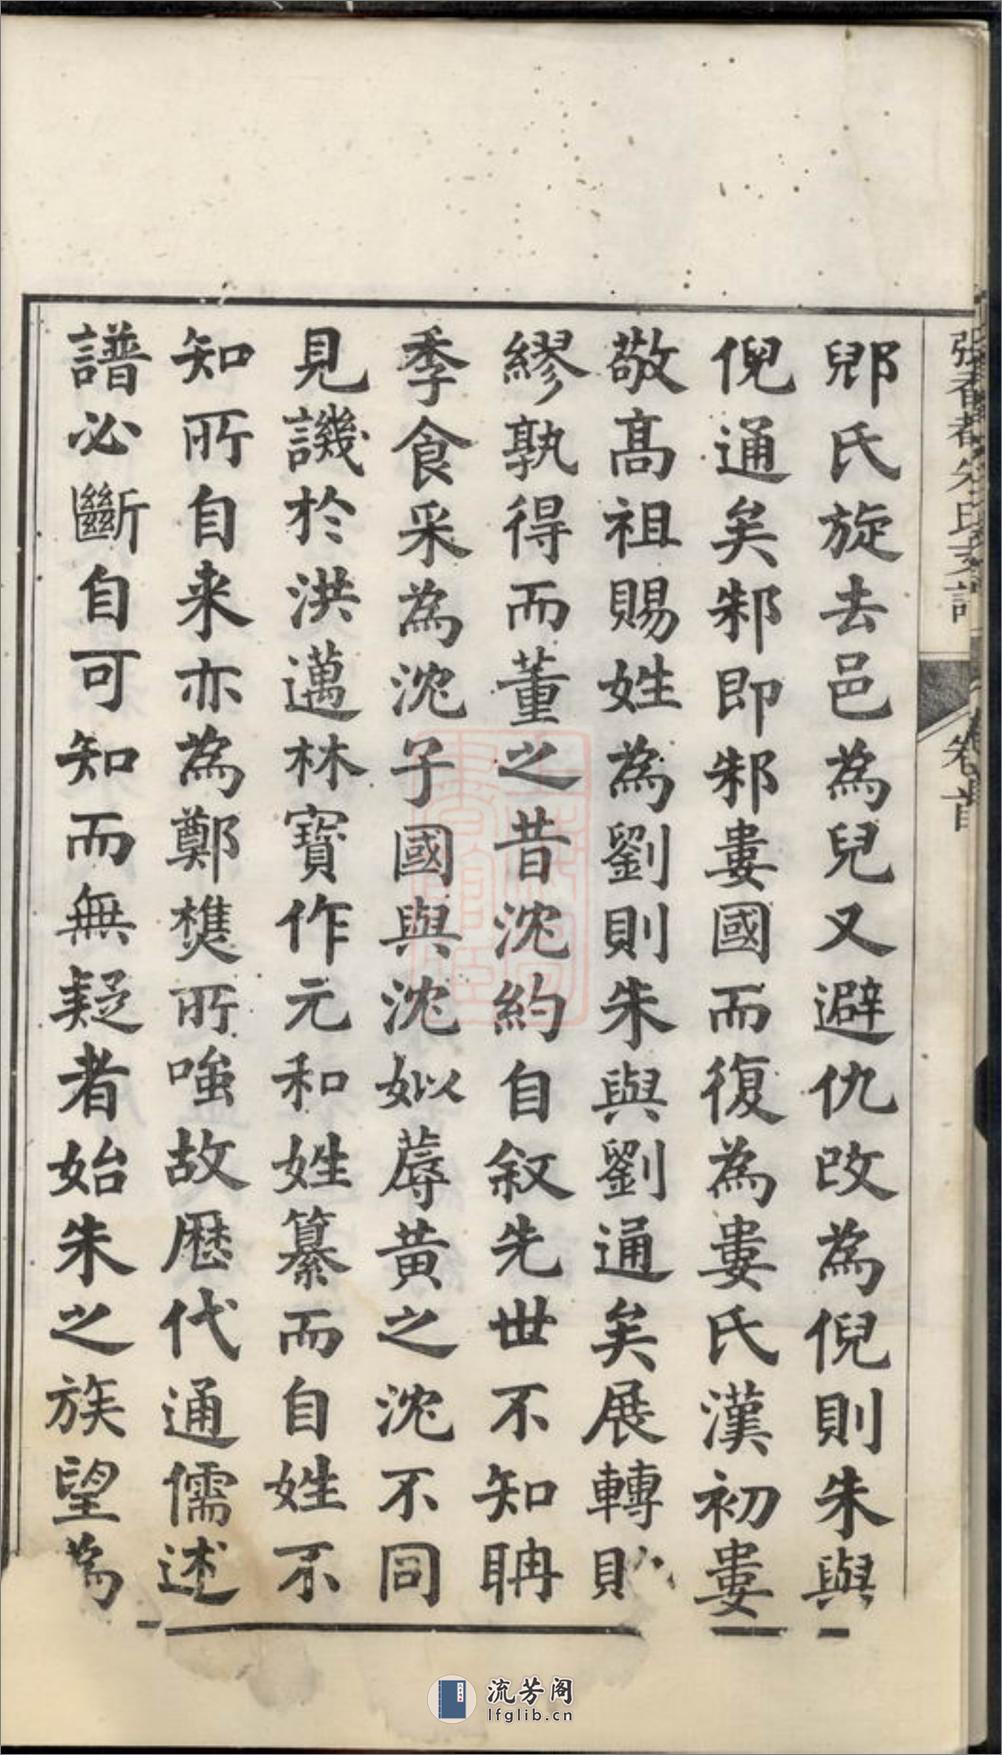 郳氏旋去邑為兒又避仇改為倪則朱與
倪通矣邾即邾婁國而復為婁氏漢初婁
敬髙祖賜姓為劉則朱與劉通矣展轉
繆孰得而董之昔沈約自叙先世不知聃
季食采為沈子國與沈姒蓐黄之沈不同
見譏於洪邁林寶作元和姓纂而自姓不
知所自来亦為鄭樵所嗤故歷代通儒述
譜必斷自可知而無疑者始朱之族望為
張香都朱氏支譜
卷首
流芳阁
lfglib.cn